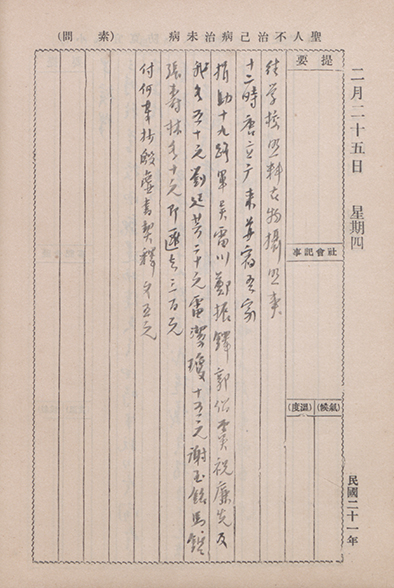 聖人不治己病治未病 (素問)
二月二十五日 星期四
民國二十一年
提要
社會記事
(氣候) (溫度)
往学校照料古物攝照事
十二時唐立厂来并宿吾家
捐助十九路軍吳雷川鄭振鐸郭紹虞祝廉先及
我各五十元劉廷芳二十元雷潔瓊十五元謝玉銘馬鑑
張壽林各十元即匯去三百元
付何 抄殷虛書契釋文五元